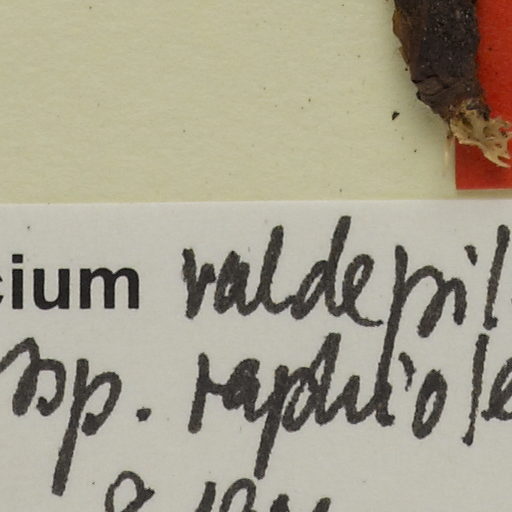 cium valdepil
ssp. raphiole